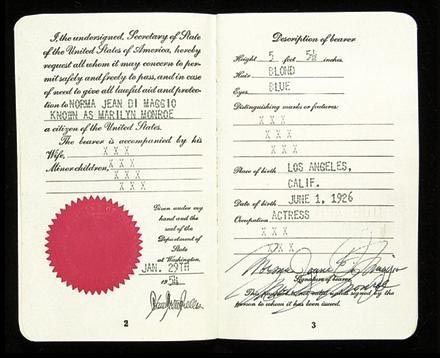 I, the undersigned, Secretary of State
of the United States of America, hereby
request all whom it may concern to per-
mit safely and freely to pass, and in case
of need to give all lawful aid and protec-
tion to NORMA JEAN DI MAGGIO
KNOWN AS MARILYN MONROE
a citizen of the United States.
The bearer is accompanied by his
Wife, X X X
Minor children, X X X
X X X
X X X
Given under my
hand and the
seal of the
Department of
State
at Washington,
JAN. 29TH
19
2
Description of bearer
Height 5 feet 5½ inches
Hair BLOND
Eyes BLUE
Distinguishing marks or features:
X X X
X X X
X X X
Place of birth LOS ANGELES,
CALIF.
Date of birth JUNE 1, 1926
Occupation ACTRESS
X X X
X X X
Norma Jeane Di Maggio
Signature of bearer
Monroe
signed by the
person to whom it has been issued.
3